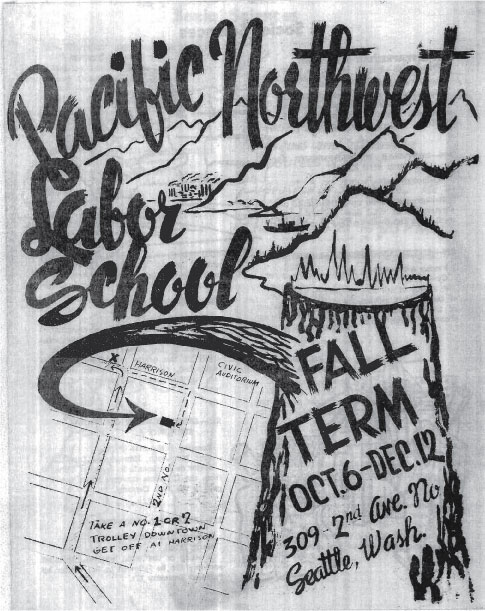 Pacific Northwest
Labor
School
FALL
TERM
OCT. 6-DEC. 12
309-2nd Ave. No
Seattle, Wash.
X
HARRISON
CIVIC
AUDITORIUM
2ND NO.
TAKE A NO. 1 OR 2
TROLLEY DOWNTOWN
GET OFF AT HARRISON